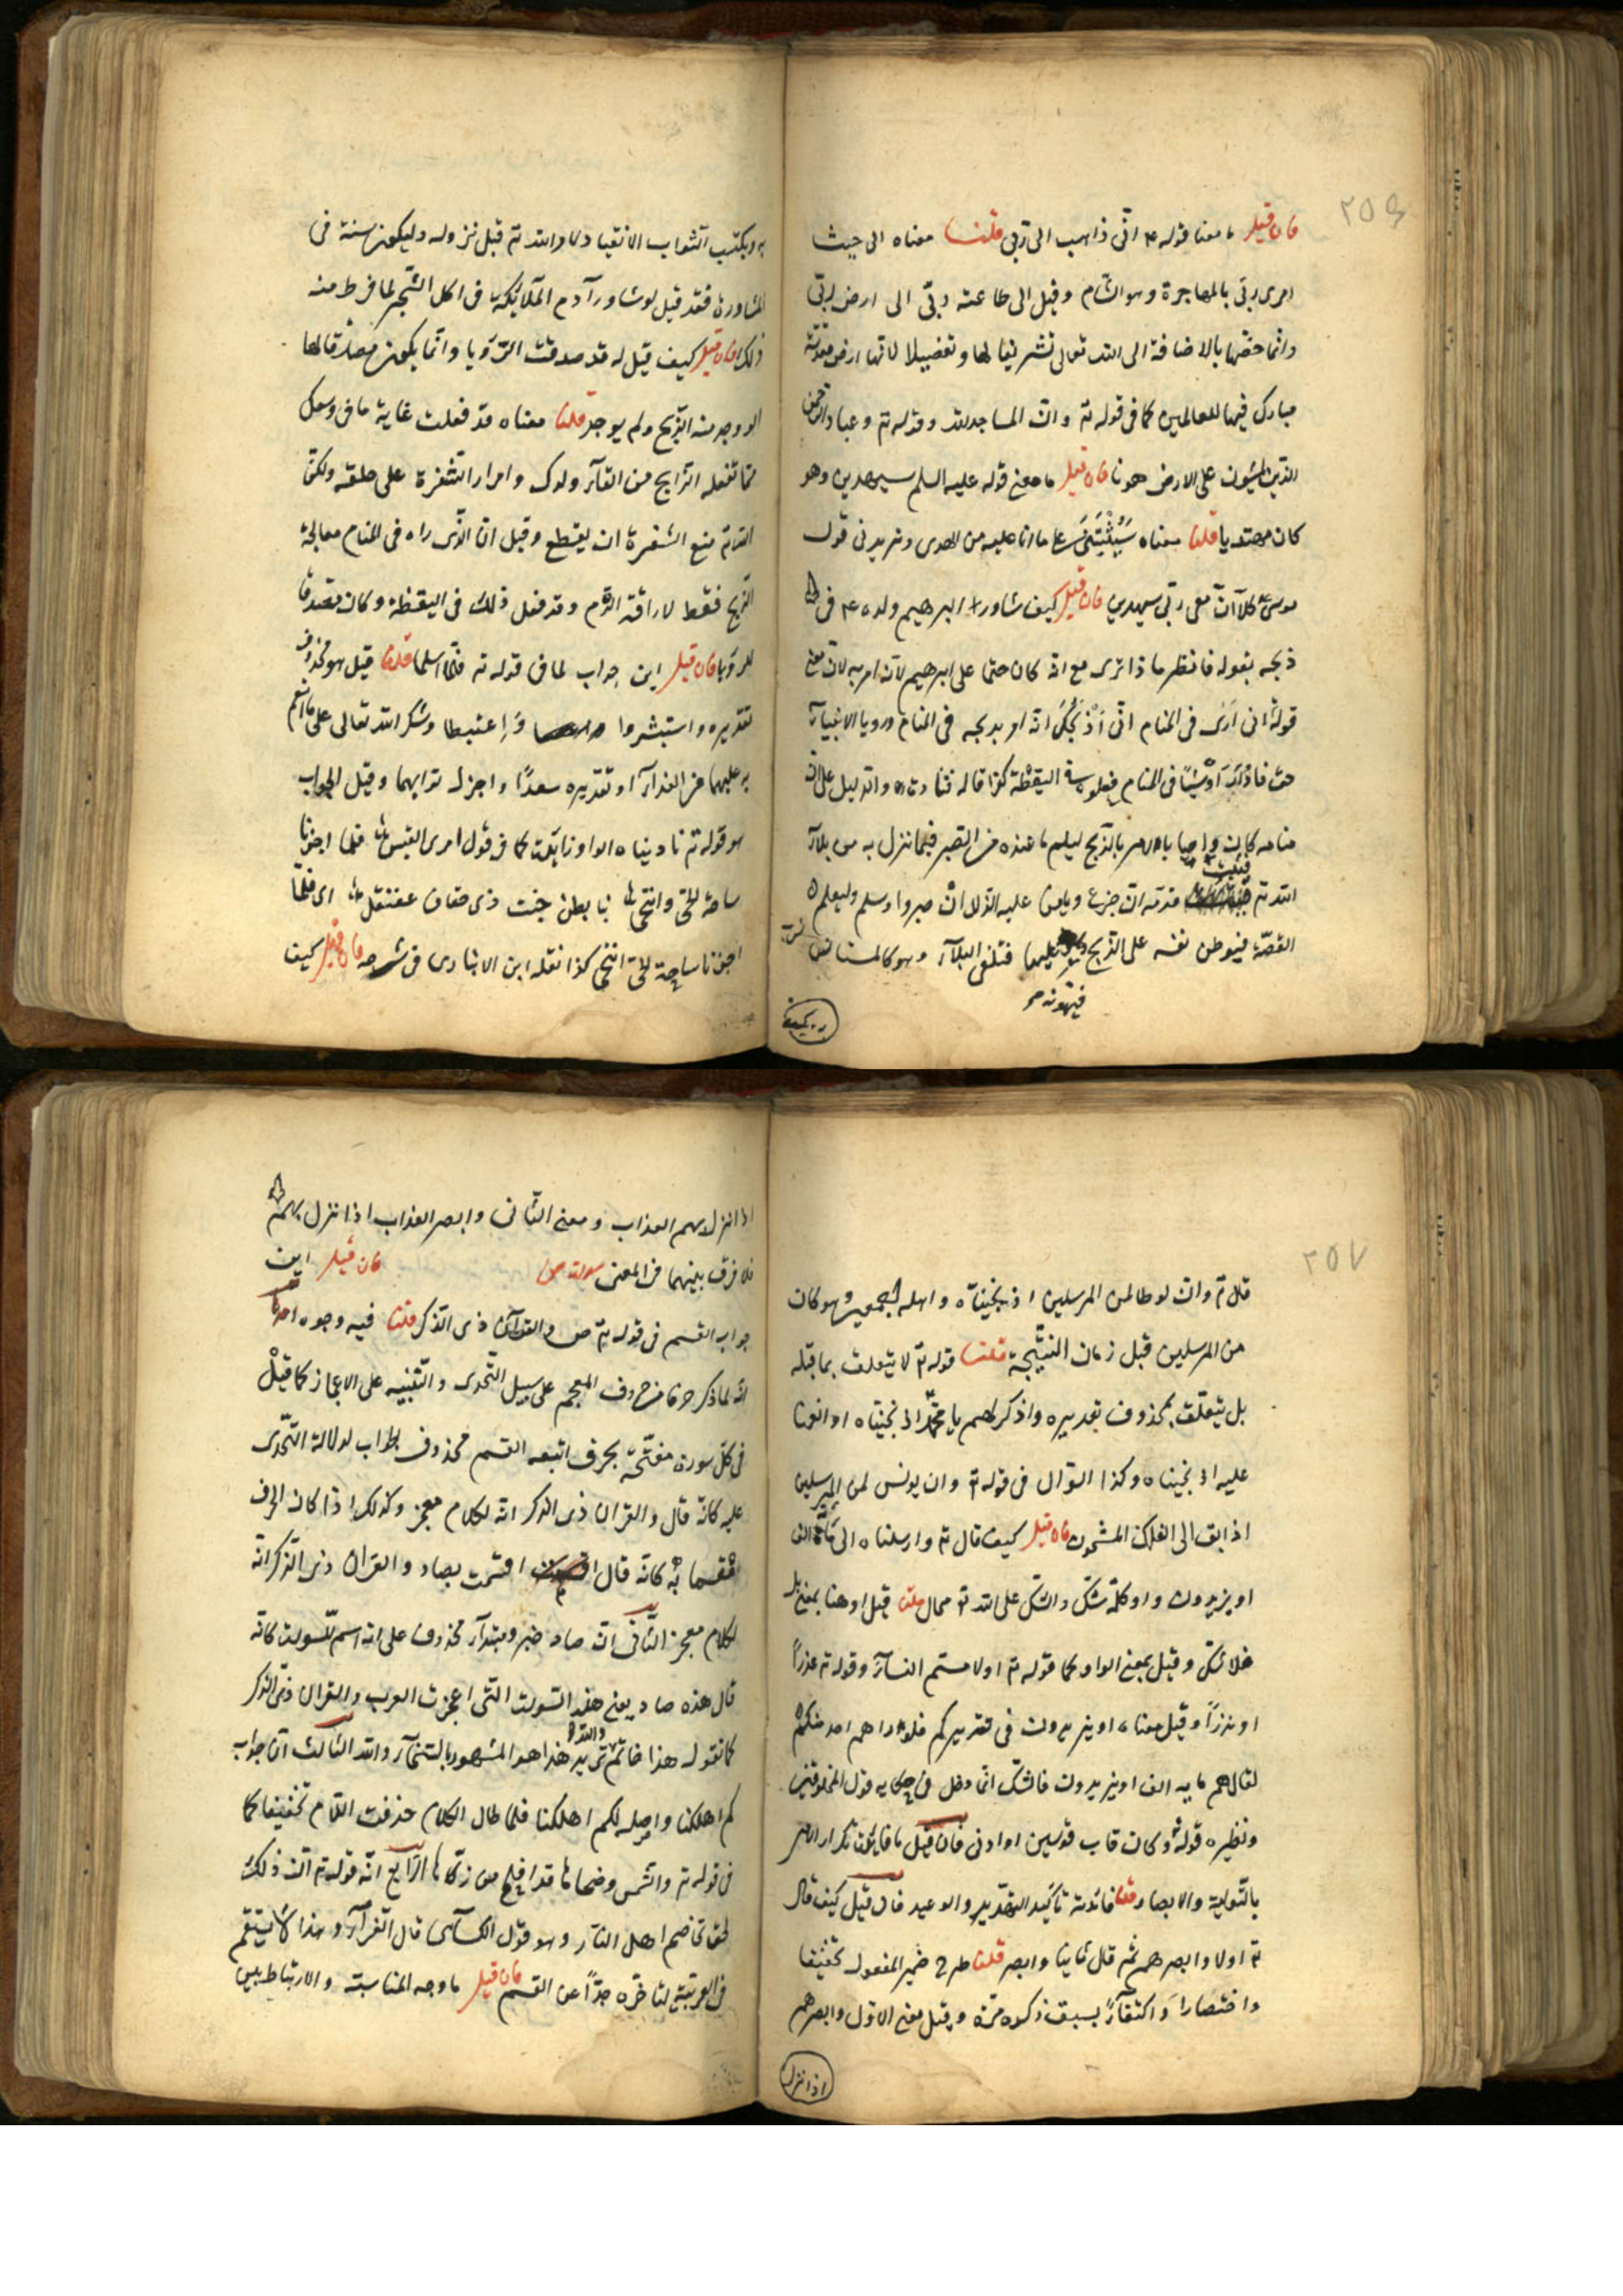 ٢٥٦
فان قيل ما معنا قوله ع م انى ذاهب الى ربى قلنا معناه الى حيث
امرى ربى بالمهاجرة وهو الشام وقيل الى طاعته ربى الى ارض ربى
وانما خصها بالاضافة الى الله تعالى تشريفا لها وتفضيلا لانها ارض مقدسة
مبارك فيها للعالمين كما فى قوله تم وان المساجد لله وقوله تم وعباد الرحمن
الذين يمشون على الارض هونا فان قيل ما معنى قوله عليه السلم سيهدين وهو
كان مهتديا قلنا معناه سيثبتنى على ما انا عليه من الهدى ويزيدنى قول
موسى كلا ان معى ربى سيهدين فان قيل كيف شاور ابرهيم ولده ع م فى
ذبحه بقوله فانظر ماذا ترى مع انه كان حتما على ابرهيم لانه امر به لان معنى
قوله انى ارى فى المنام انى اذبحك انه امر بذبحه فى المنام ورويا الانبياء
حق فاذا رأوا شيئا فى المنام فعلوه فى اليقظة كذا قاله قتادة والدليل على ان
منامه كان وحيا بالامر بالذبح ليعلم ما عنده من الصبر فيما نزل به من بلاء
الله تم فيثبت قدمه ان جزع ويامن عليه الزلل ان صبر وسلم وليعلم
القصة فيوطن نفسه على الذبح ويهونه عليها فتلقى البلاء وهو كالمستانس
فيهونه صح
به ويكتب
به ويكتب الثواب الانقياد لامر الله تم قبل نزوله وليكون سنة فى
المشاورة فقد قيل لو شاور آدم الملائكة فى اكل الشجر لما فرط منه
ذلك فان قيل كيف قيل له قد صدقت الرؤيا وانما يكون مصدقا لها
لو وجد منه الذبح ولم يوجد قلنا معناه قد فعلت غاية ما فى وسعك
مما تفعله الذابح من القاء ولدك وامرار الشفرة على حلقه ولكن
الله تم منع الشفرة ان يقطع وقيل ان الذى راه فى المنام معالجة
الذبح فقط لاراقة الدم وقد فعل ذلك فى اليقظة وكان مصدقا
للرؤيا فان قيل اين جواب لما فى قوله تم فلما اسلما قلنا قيل هو محذوف
تقديره واستبشروا واغتبطا وشكر الله تعالى على ما انعم
به عليهما من الفداء او تقديره سعدا واجزل ثوابهما وقيل الجواب
هو قوله تم ناديناه والواو زايدة كما فى قول امرى القيس فلما اجزنا
ساحة الحى وانتحى بنا بطن خبت ذى حقاف عقنقل اى فلما
اجزنا ساحة الحى انتحى كذا نقله ابن الانبارى فى شرحه فان قيل كيف
٢٥٧
قال تم وان لوطا لمن المرسلين اذ نجيناه واهله اجمعين وهو كان
من المرسلين قبل زمان التنجية قلنا قوله تم لا يتعلق بما قبله
بل يتعلق بمحذوف تقديره واذكر لهم يا محمد اذ نجيناه او انعمنا
عليه اذ نجيناه وكذا السؤال فى قوله تم وان يونس لمن المرسلين
اذ ابق الى الفلك المشحون فان قيل كيف قال تم وارسلناه الى مائة الف
او يزيدون واو كلمة شك والشك على الله تم محال قلنا قيل او هنا بمعنى بل
فلا شك وقيل بمعنى الواو كما قوله تم او لامستم النساء وقوله تم عذرا
او نذرا وقيل معناه او يزيدون فى تقديركم فلو راهم احد منكم
لقال هم مايه الف او يزيدون فالشك انما دخل فى حكايه قول المخلوقين
ونظيره قوله وكان قاب قوسين او ادنى فان قيل ما فايدة تكرار الامر
بالتولية والابصار قلنا فائدته تاكيد التهديد والوعيد فان قيل كيف قال
تم اولا وابصرهم ثم قال ثانيا وابصر قلنا طرح ضمير المفعول تخفيفا
واختصارا واكتفاء بسبق ذكره مرة وقيل معنى الاول وابصرهم
اذا نزل
اذا نزل بهم العذاب ومعنى الثانى وابصر العذاب اذا نزل بهم
فلا فرق بينهما فى المعنى سورة ص فان قيل اين
جواب القسم فى قوله تم ص والقرآن ذى الذكر قلنا فيه وجوه احدها
انه لما ذكر حرفا من حروف المعجم على سبيل التحدى والتنبيه على الاعجاز كما قيل
فى كل سورة مفتتحة بحرف اتبعه القسم محذوف الجواب لدلالة التحدى
عليه كانه قال والقران ذى الذكر انه لكلام معجز وكذلك اذا كان الحرف
مقسما به كانه قال اقسمت بصاد والقران ذى الذكر انه
لكلام معجز الثانى ان صاد خبر مبتداء محذوف على انه اسم للسورة كانه
قال هذه صاد يعنى هذه السورة التى اعجزت العرب والقران ذى الذكر
كما تقول هذا خاتم تريد هذا هو المشهور بالسخاء والله الثالث ان جواب
كم اهلكنا واصله لكم اهلكنا فلما طال الكلام حذفت اللام تخفيفا كما
فى قوله تم والشمس وضحاها قد افلح من زكاها الرابع انه قوله تم ان ذلك
لحق تخاصم اهل النار وهو قول الكسائى قال الفراء وهذا لا يستقيم
فى العربية لتاخره جدا عن القسم فان قيل ما وجه المناسبة والارتباط بين